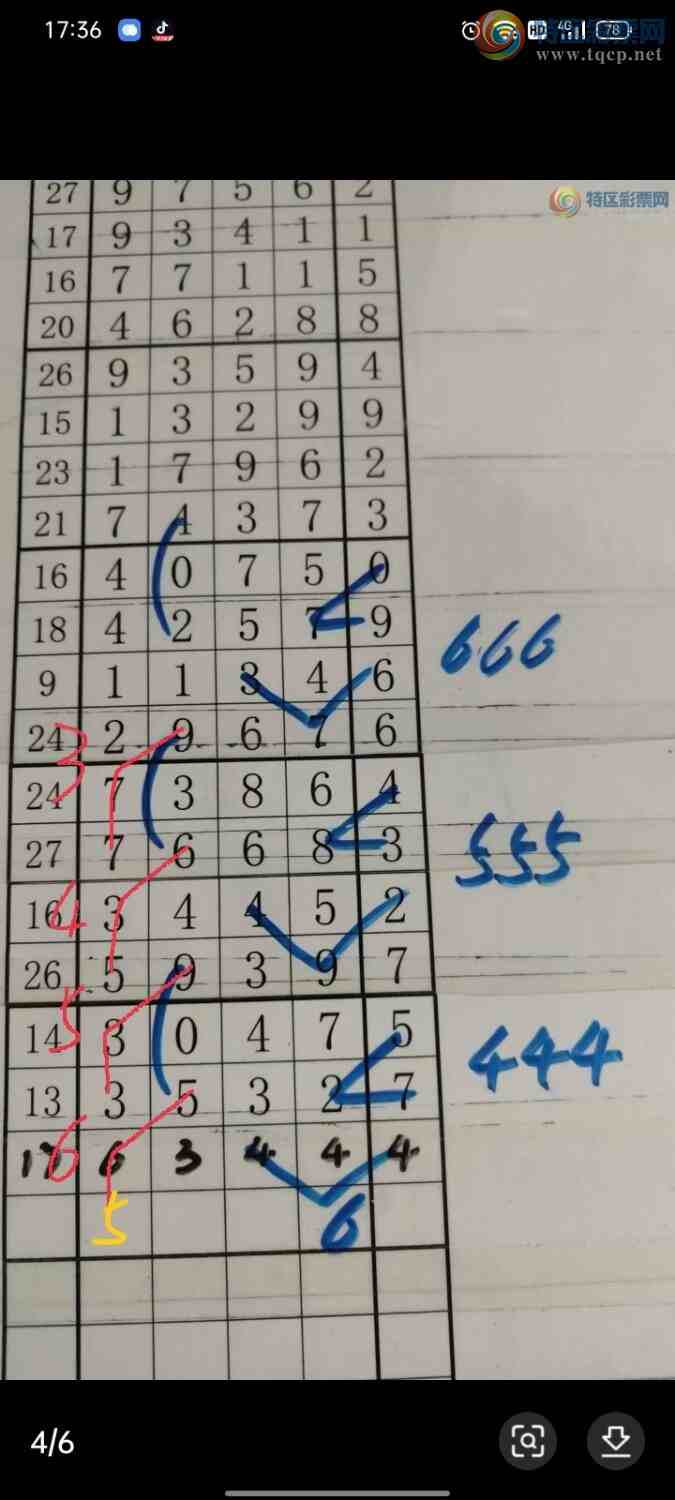 17:36 HD 4G 78
特区彩票网
www.tqcp.net
特区彩票网
27 9 7 5 6 2
17 9 3 4 1 1
16 7 7 1 1 5
20 4 6 2 8 8
26 9 3 5 9 4
15 1 3 2 9 9
23 1 7 9 6 2
21 7 4 3 7 3
16 4 0 7 5 0
18 4 2 5 7 9 666
9 1 1 3 4 6
24 2 9 6 7 6
3
24 7 3 8 6 4
27 7 6 6 8 3 555
16 4 3 4 4 5 2
26 5 9 3 9 7
5
14 3 0 4 7 5 444
13 3 5 3 2 7
17 6 6 3 4 4 4
5 6
4/6